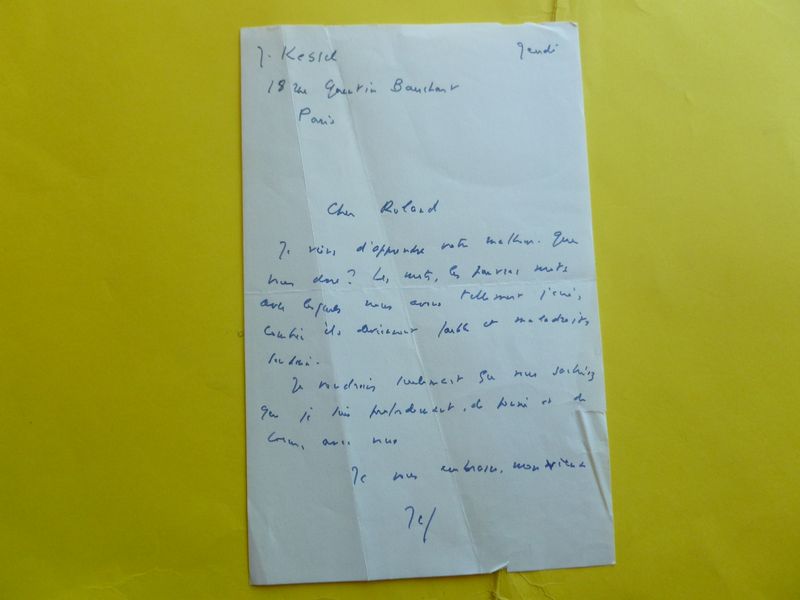 J. Kessel Jeudi
18 rue Quentin Bauchart
Paris
Cher Roland
Je viens d'apprendre votre malheur. Que
vous dire? Les mots, les pauvres mots
avec lesquels nous avons tellement joué,
combien ils deviennent faibles et maladroits
soudain.
Je voudrais seulement que vous sachiez
que je suis profondément, de pensée et de
coeur, avec vous
Je vous embrasse, mon vieux
Jef